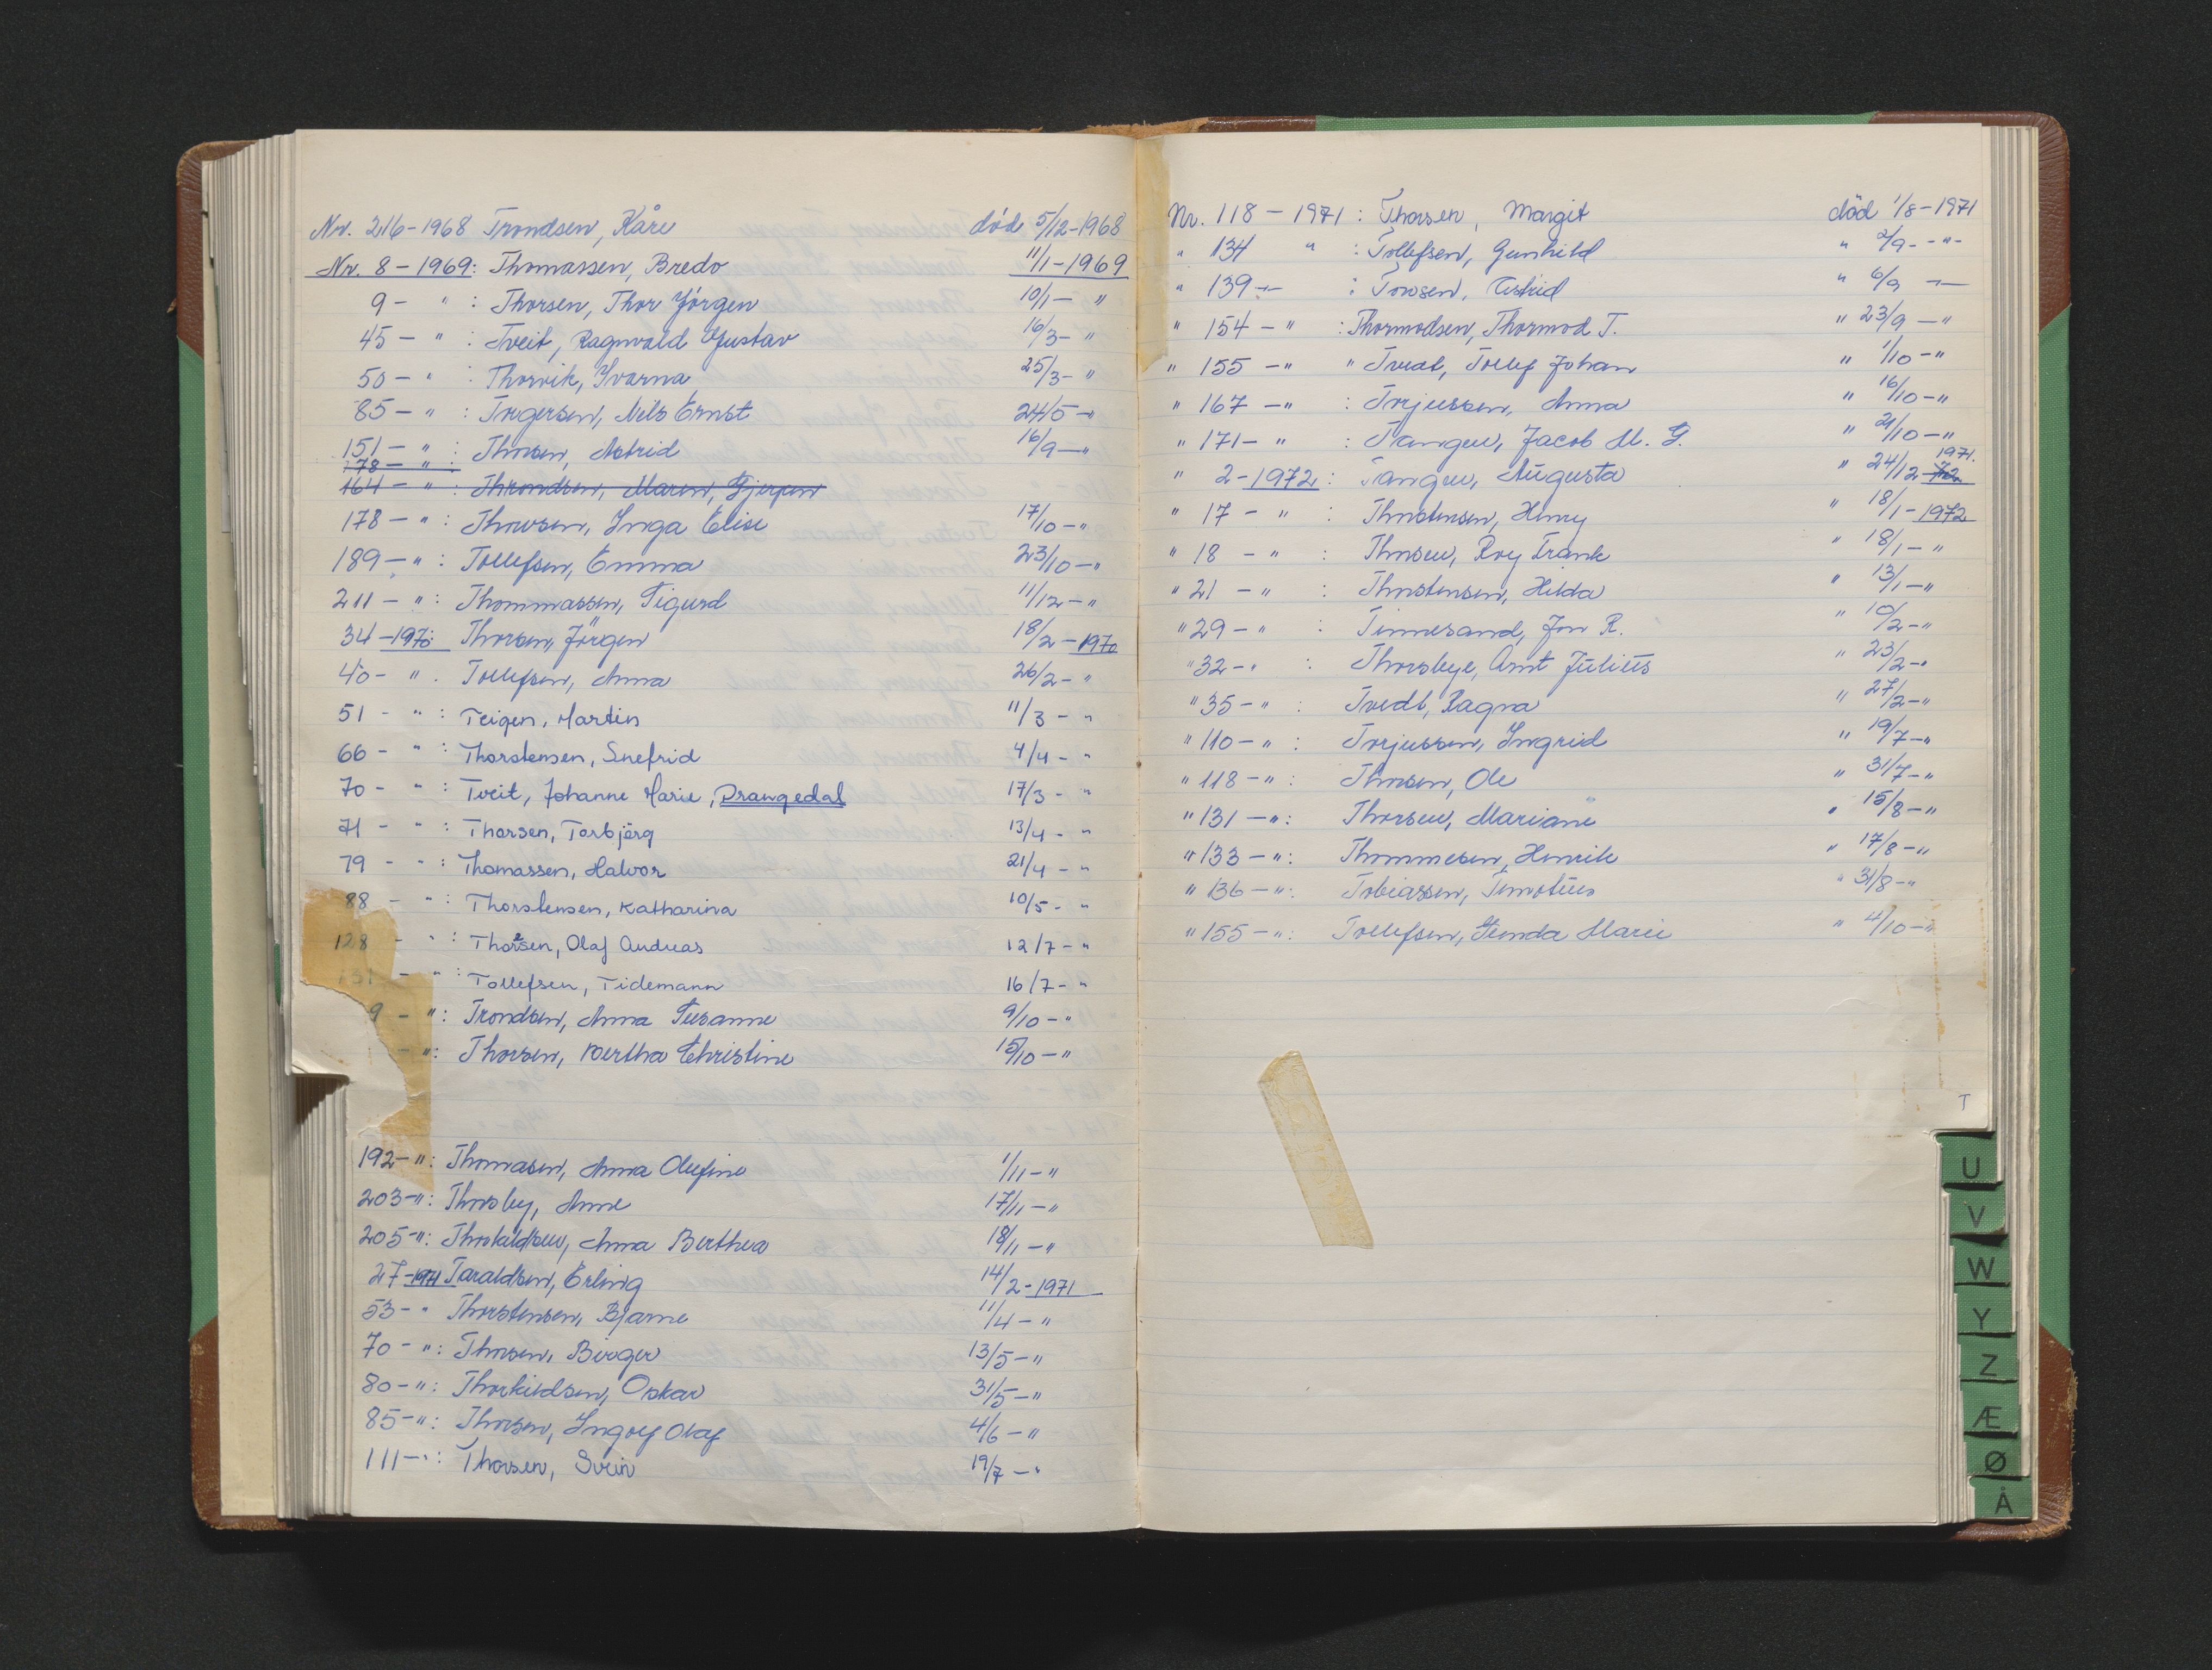 Nr. 216-1968 Trondsen, Kåre død 5/12-1968
Nr. 8-1969: Thomassen, Bredo 11/1-1969
9- " : Thorsen, Thor Jörgen 10/1- "
45- " : Tveit, Ragnvald Gustav 16/3- "
50- " : Thorvik, Yvarna 25/3- "
85- " : Torgersen, Nils Ernst 24/5- "
151- " : Thorsen, Astrid 16/9- "
178- " :
164- " : Throndsen, Maren, Gjerpen
178- " : Thorsen, Inga Elise 17/10- "
189- " : Tollefsen, Emma 23/10- "
211- " : Thommassen, Sigurd 11/12- "
34-1970: Thorsen, Jörgen 18/2-1970
40- " . Tollefsen, Anna 26/2- "
51- " : Teigen, Martin 11/3- "
66- " : Thorstensen, Snefrid 4/4- "
70- " : Tveit, Johanne Marie, Drangedal 17/3- "
71- " : Thorsen, Torbjörg 13/4- "
79- " : Thomassen, Halvor 21/4- "
88- " : Thorstensen, Katharina 10/5- "
128- " : Thorsen, Olaf Andreas 12/7- "
131- " : Tollefsen, Tidemann 16/7- "
9- " : Trondsen, Anna Susanne 9/10- "
- " : Thorsen, Bertha Christine 15/10- "
192- " : Thomasen, Anna Olufine 1/11- "
203- " : Thorsby, Anne 17/11- "
205- " : Thorkildsen, Anna Berthea 18/11- "
27-1971 Taraldsen, Erling 14/2-1971
53- " Thorstensen, Bjarne 11/4- "
70- " : Thorsen, Birger 13/5- "
80- " : Thorkildsen, Oskar 31/5- "
85- " : Thorsen, Ingolf Olaf 4/6- "
111- " : Thorsen, Svein 19/7- "
Nr. 118-1971: Thorsen, Margit död 1/8-1971
" 134 " : Tollefsen, Gunhild " 2/9- - " -
" 139 - " - : Torsen, Astrid " 6/9 - " -
" 154- " : Thormodsen, Thormod T. " 23/9- "
" 155- " " Tvedt, Tollef Johan " 1/10- "
" 167- " : Torjussen, Anna " 16/10- "
" 171- " : Tangen, Jacob M. G. " 21/10- "
" 2-1972: Tangen, Augusta " 24/12-72 1971.
" 17- " : Thorstensen, Henry " 18/1-1972
" 18- " : Thorsen, Roy Frank " 18/1- "
" 21- " : Thorstensen, Hilda " 13/1- "
" 29- " : Tinnesand, Jon R. " 10/2- "
" 32- " : Thorsbye, Arnt Julius " 23/2- "
" 35- " : Tvedt, Ragna " 27/2- "
" 110- " : Torjussen, Ingrid " 19/7- "
" 118- " : Thorsen, Ole " 31/7- "
" 131- " : Thorsen, Mariane " 15/8- "
" 133- " : Thommesen, Henrik " 17/8- "
" 136- " : Tobiassen, Timotius " 31/8- "
" 155- " : Tollefsen, Marie " 4/10- "
T
U
V
W
Y
Z
Æ
Ø
Å